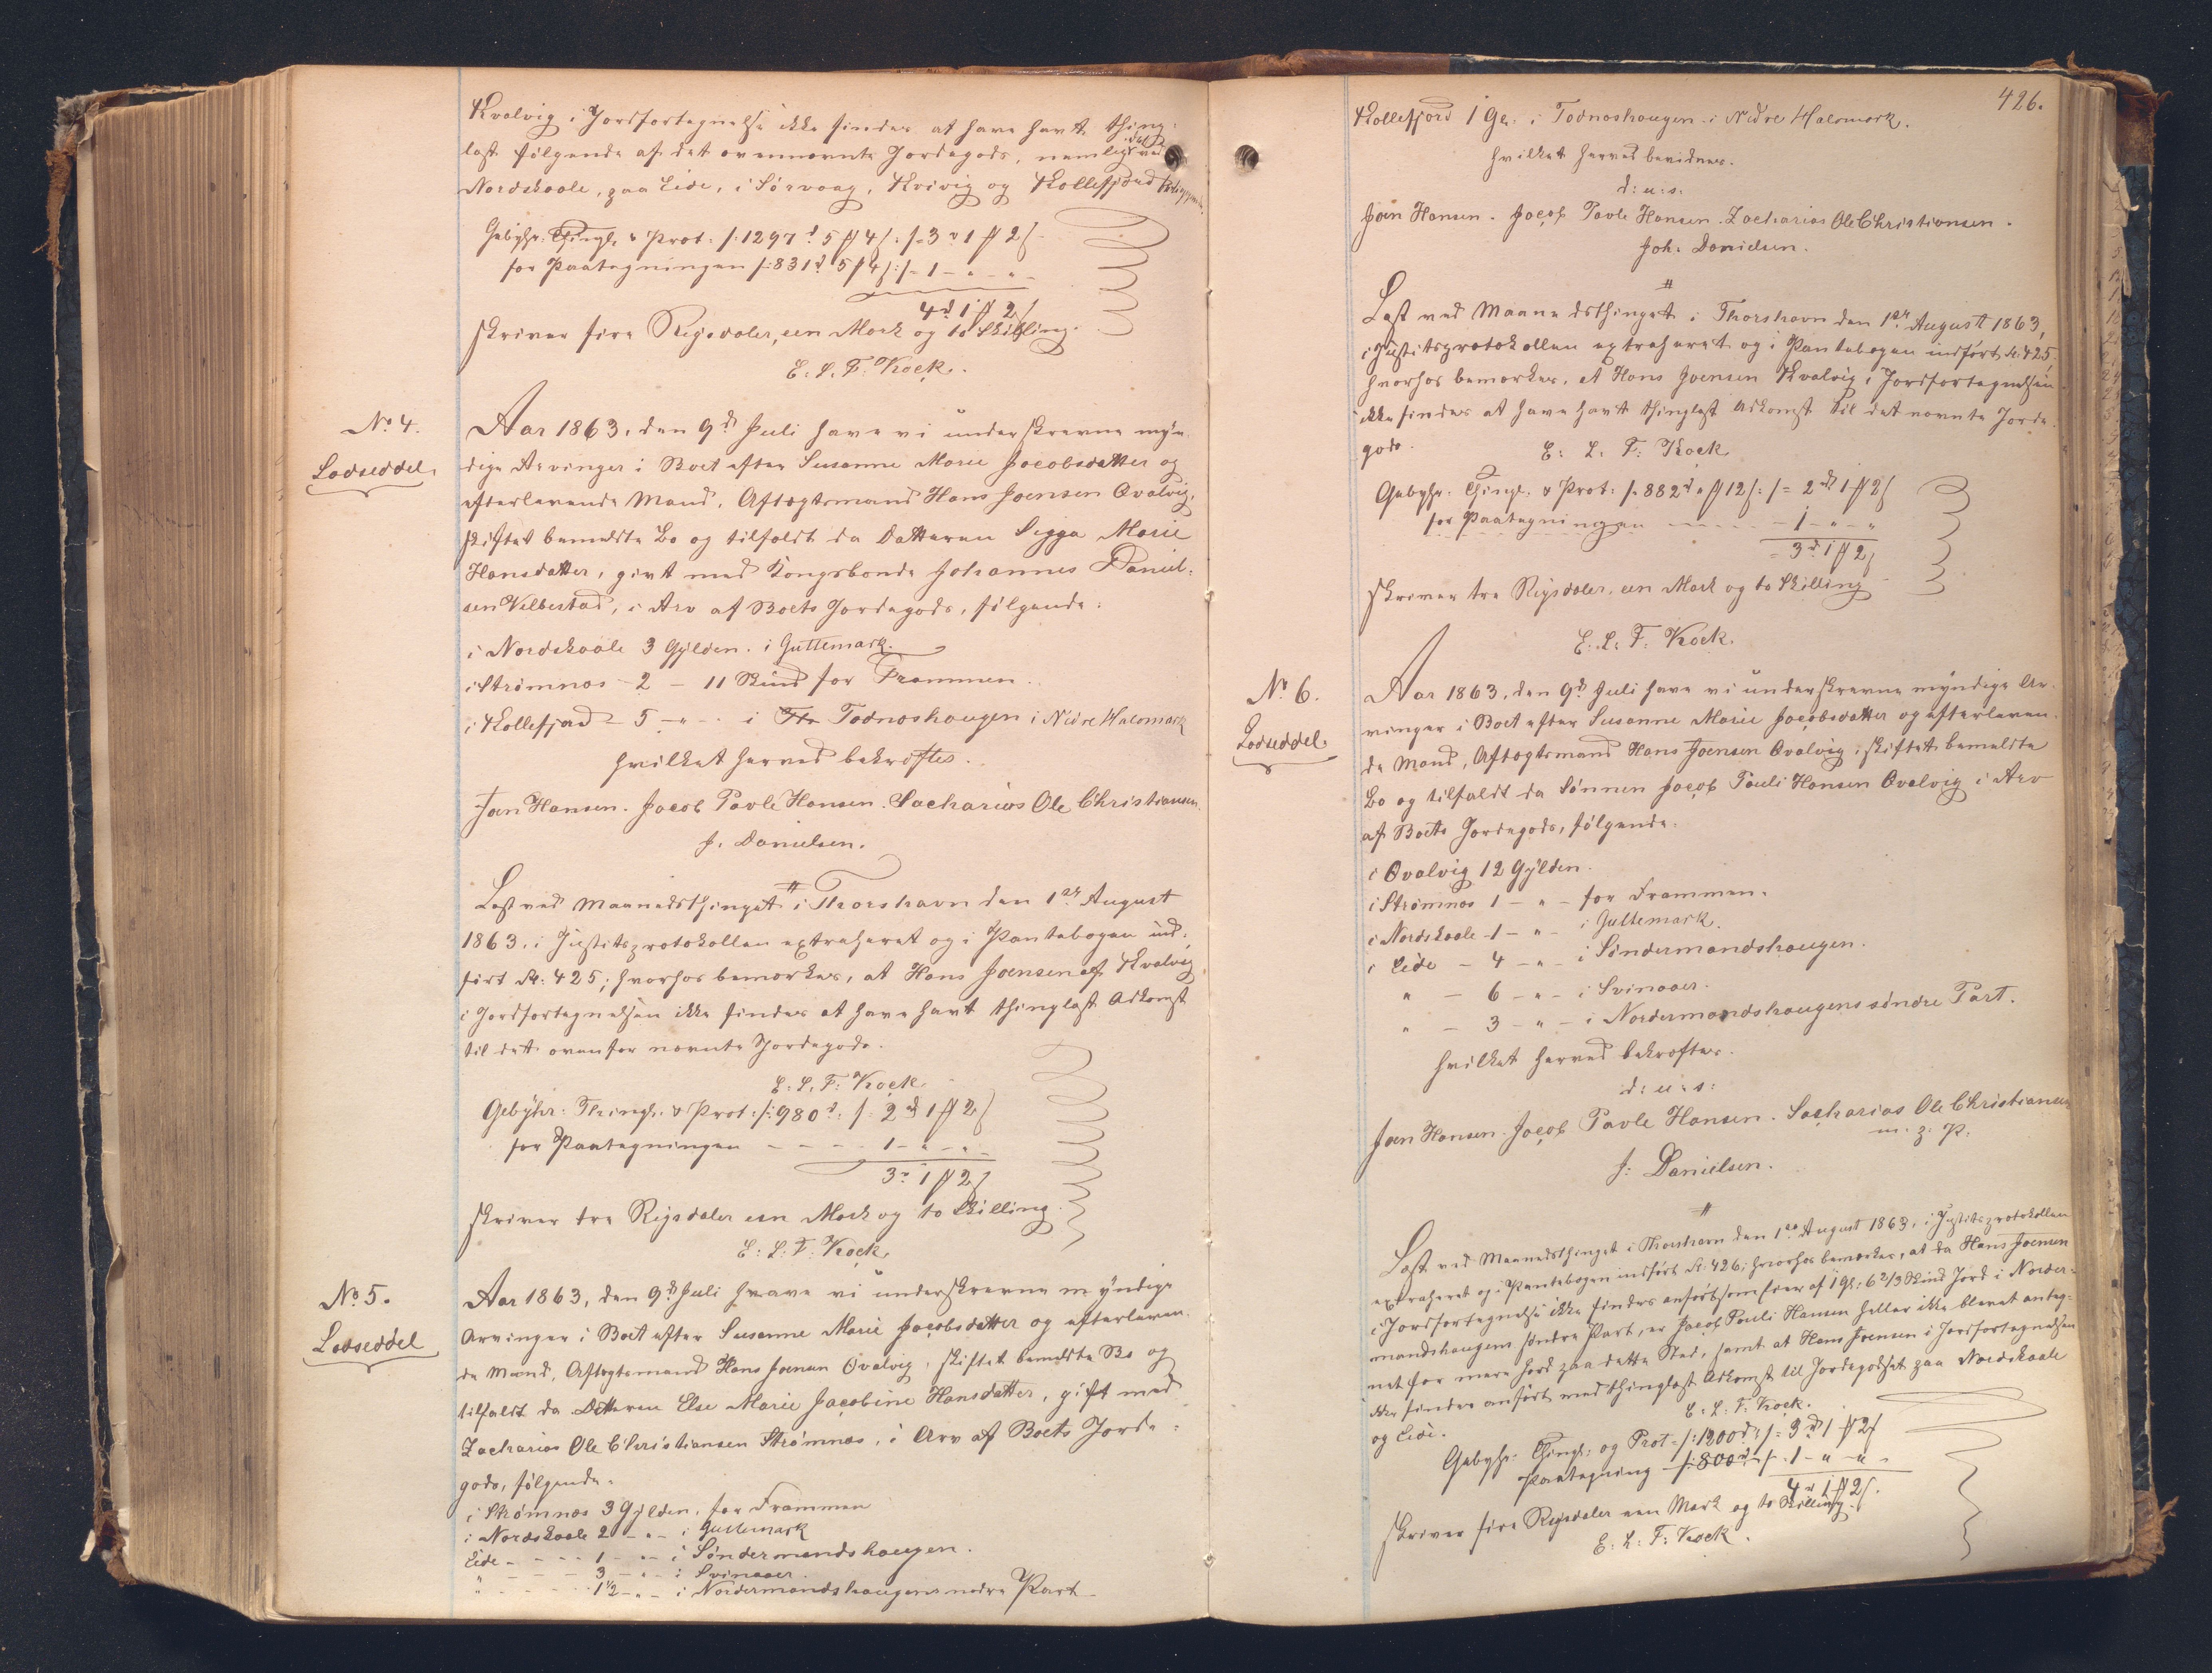 Kvalvig i Jordfortegnelse ikke findes at have havt thing-
læst følgende af det ovennævnte Jordegods, nemlig det ved
Nordskaale, paa Eide, i Sørvaag, Kvivig og Kollefjord
Gebyhr: Thingl. & Prot: /:1297d 5 ℳ 4ſ:/ = 3d 1 ℳ 2ſ
for Paategningen /:831d 5 ℳ 4ſ:/ = 1 - " - "
4d 1 ℳ 2ſ
skriver fire Rigsdaler, een Mark og to Skilling.
E: L. F. Kock.
No 4.
Lodseddel.
Aar 1863, den 9d Juli have vi underskrevne myn-
dige Arvinger i Boet efter Susanne Marie Jacobsdatter og
efterlevende Mand, Aftægtsmand Hans Joensen Qvalvig,
skiftet bemeldte Bo og tilfaldt da Datteren Sigga Marie
Hansdatter, givt med Kongsbonde Johannes Daniel-
sen Velbestad, i Arv af Boets Jordegods, følgende:
i Nordskaale 3 Gylden. i Guttemark.
i Strømnæs - 2 - 11 Skind for Frammen.
i Kollefjord - 5 - " - i Todnæshaugen i Nidre Halsmark
hvilket herved bekræftes.
Joen Hansen. Jacob Povle Hansen. Sacharias Ole Christiansen.
J. Danielsen.
Læst ved Maanedsthinget i Thorshavn den 1ste August
1863, i Justitsprotokollen extraheret og i Pantebogen ind-
ført Fol: 425; hvorhos bemærkes, at Hans Joensen af Kvalvig
i Jordfortegnelsen ikke findes at have havt thinglæst Adkomst
til det ovenfor nævnte Jordegods.
E: L. F: Kock
Gebyhr: Thingl. & Prot: /:980d:/ = 2d 1 ℳ 2ſ
for Paategningen - - - 1 - " - " -
3d 1 ℳ 2ſ
skriver tre Rigsdaler een Mark og to Skilling.
E: L: F: Kock.
No 5.
Lodseddel
Aar 1863, den 9d Juli have vi underskrevne myndige
Arvinger i Boet efter Susanne Marie Jacobsdatter og efterleven-
de Mand, Aftægtsmand Hans Joensen Qvalvig, skiftet bemeldte Bo og
tilfaldt da Datteren Else Marie Jacobine Hansdatter, gift med
Zacharias Ole Christiansen Strømnæs, i Arv af Boets Jorde-
gods, følgende:
i Strømnæs 3 Gylden, for Frammen
i Nordskaale 2 - " - i Guttemark
Eide - - - 1 - " - i Søndermandshaugen.
" - - - 3 - " - i Svinaaer.
" - - - 1 1/2 - " - i Nordermandshaugens nedre Part -
426.
Kollefjord 1 Gl. i Todnæshaugen i Nedre Halsmark.
hvilket herved bevidnes.
d: u: s:
Joen Hansen. Jacob Povle Hansen. Zacharias Ole Christiansen.
Joh. Danielsen.
Læst ved Maanedsthinget i Thorshavn den 1ste August 1863,
i Justitsprotokollen extraheret og i Pantebogen indført Fol: 425,
hvorhos bemærkes, at Hans Joensen Kvalvig i Jordfortegnelsen
ikke findes at have havt thinglæst Adkomst til det nævnte Jorde-
gods.
E: L. F: Kock
Gebyhr: Thingl: & Prot: /:882d " ℳ 12ſ:/ = 2d 1 ℳ 2ſ
for Paategningen - - - - - 1 - " - "
= 3d 1 ℳ 2ſ
skriver tre Rigsdaler, een Mark og to Skilling
E: L: F: Kock.
No 6.
Lodseddel.
Aar 1863, den 9d Juli have vi underskrevne myndige Ar-
vinger i Boet efter Susanne Marie Jacobsdatter og efterleven-
de Mand, Aftægtsmand Hans Joensen Qvalvig, skiftet bemeldte
Bo og tilfaldt da Sønnen Jacob Pauli Hansen Qvalvig i Arv
af Boets Jordegods, følgende:
i Qvalvig 12 Gylden.
i Strømnæs 1 - " - for Frammen.
i Nordskaale - 1 - " - i Guttemark.
i Eide - 4 - " - i Søndermandshaugen.
" - 6 - " - i Svinaaer.
" - 3 - " - i Nordermandshaugens søndre Part.
hvilket herved bekræftes.
d: u: s:
Joen Hansen. Jacob Povle Hansen. Sacharias Ole Christiansen
m. z. P.
J: Danielsen.
Læst ved Maanedsthinget i Thorshavn den 1ste August 1863, i Justitsprotokollen
extraheret og i Pantebogen indført Fol: 426; hvorhos bemærkes, at da Hans Joensen
i Jordfortegnelse ikke findes anført som Eier af 1 Gl: 6 2/3 Skind Jord i Norder-
mandshaugens søndre Part, er Jacob Pauli Hansen heller ikke blevet anteg-
net for mere Jord paa dette Sted, samt at Hans Joensen i Jordfortegnelsen
ikke findes anført med thinglæst Adkomst til Jordegodset paa Nordskaale
og Eide.
E: L: F: Kock.
Gebyhr: Thingl: og Prot: /:1200d:/ = 3d 1 ℳ 2ſ
Paategning /:800d:/ - 1 - " - " -
4d 1 ℳ 2ſ.
skriver fire Rigsdaler een Mark og to Skilling.
E: L: F: Kock.